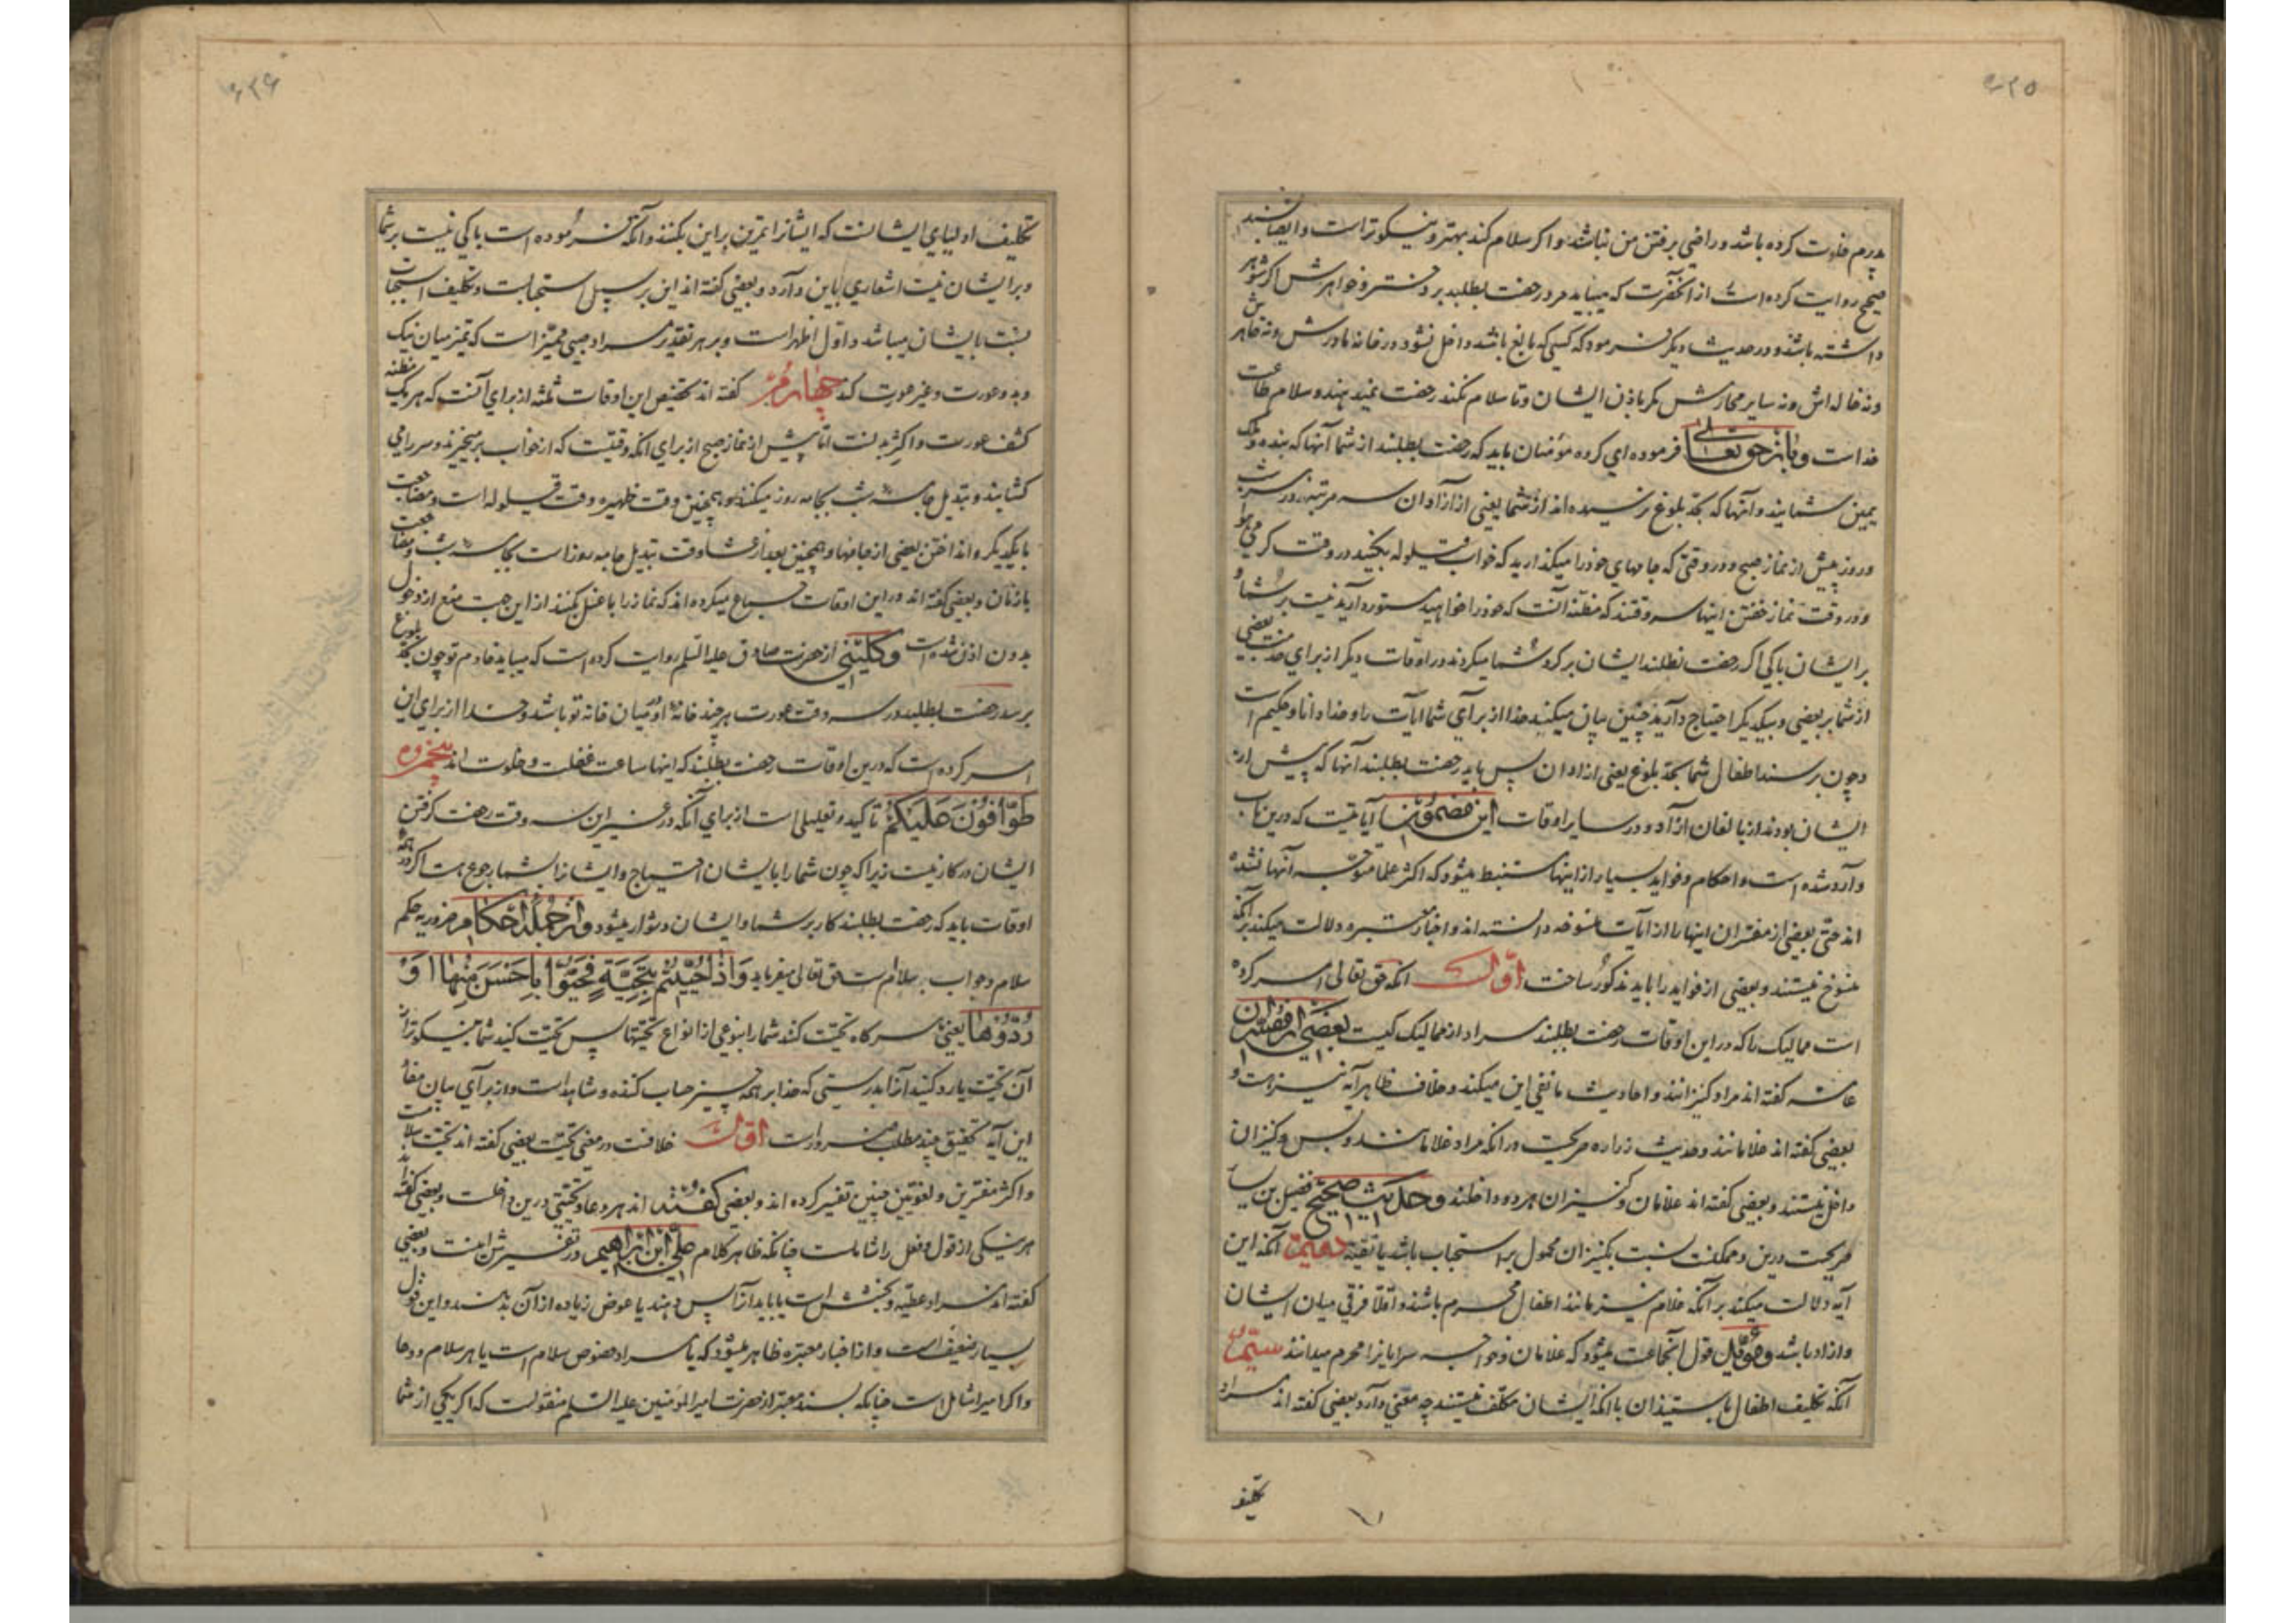 ۹۲۵
پدرم خلوت کرده باشد و راضی برفتن من نباشد و اکر سلام کند بهتر و نیکوتر است و ایضا بسند
صحیح روایت کرده است از آنحضرت که میباید مرد رخصت بطلبد بر دختر و خواهرش اکر شوهر
داشته باشند و در حدیث دیکر فرمود که کسی که بالغ باشد داخل نشود در خانه مادرش و نه خواهرش
و نه خاله اش و نه سایر محارمش مکر باذن ایشان و تا سلام نکند رخصت نمیدهند و سلام طاعت
خداست و باز حق تعالی فرموده ای کروه مؤمنان باید که رخصت بطلبند از شما آنها که بنده و ملک
یمین شمایند و آنها که بحد بلوغ نرسیده اند از شما یعنی از آزادان سه مرتبه در هر شب
و روز پیش از نماز صبح و در وقتی که جامهای خود را میکذارید که خواب قیلوله بکنید در وقت کرمی هوا
و در وقت نماز خفتن اینها سه وقتند که مظنه آنست که خود را خواهید مستور دارید نیست بر شما و
بر ایشان باکی اکر رخصت نطلبند ایشان بر کرد شما میکردند در اوقات دیکر از برای خدمت بعضی
از شما بر بعضی و بیکدیکر احتیاج دارید چنین بیان میکند خدا از برای شما آیات را و خدا دانا و حکیم است
و چون برسند اطفال شما بحد بلوغ یعنی از آزادان پس باید رخصت بطلبند آنها که پیش از
ایشان بودند از بالغان آزاد و در سایر اوقات این مضمون آیاتیست که درین باب
وارد شده است و احکام و فواید بسیار از اینها مستنبط میشود که اکثر علما متوجه آنها نشده
اند حتی بعضی از مفسران اینها را از آیات منسوخه دانسته اند و اخبار معتبره دلالت میکند بر آنکه
منسوخ نیستند و بعضی از فواید را باید مذکور ساخت اول آنکه حق تعالی امر کرده
است ممالیک را که در این اوقات رخصت بطلبند مراد از ممالیک کیست بعضی از مفسران
عامه کفته اند مراد کنیزانند و احادیث ما نفی این میکند و خلاف ظاهر آیه نیز است و
بعضی کفته اند غلامانند و حدیث زراره صریحست در آنکه مراد غلامانند و بس و کنیزان
داخل نیستند و بعضی کفته اند غلامان و کنیزان هر دو داخلند و حدیث صحیح فضیل بن یسار
صریحست درین و ممکنست نسبت بکنیزان محمول بر استحباب باشد یا تقیه دویم آنکه این
آیه دلالت میکند بر آنکه غلام نیز مانند اطفال محرم باشند و اقلا فرقی میان ایشان
و آزاد باشد و مؤید قول آنجماعت میشود که غلامان و خواجه سرایانرا محرم میدانند سیم
آنکه تکلیف اطفال باستیذان با آنکه ایشان مکلف نیستند چه معنی دارد بعضی کفته اند مراد
تکلیف
۹۲۶
تکلیف اولیای ایشانست که ایشانرا تمرین بر این بکنند و آنکه فرموده است باکی نیست بر شما
و بر ایشان نیست اشعاری باین دارد و بعضی کفته اند این بر سبیل استحبابست و تکلیف استحباب
نسبت بایشان میباشد و اول اظهر است و بر هر تقدیر مراد صبی ممیز است که تمیز میان نیک
و بد و عورت و غیر عورت کند چهارم کفته اند تخصیص این اوقات ثلثه از برای آنست که هر یک مظنه
کشف عورت و اکثر بدنست اما پیش از نماز صبح از برای آنکه وقتیست که از خواب برمیخیزند و سر را می
کشایند و تبدیل جامه شب بجامه روز میکنند و همچنین وقت ظهیره وقت قیلوله است و مضاجعت
با یکدیکر و انداختن بعضی از جامها و همچنین بعد از عشا وقت تبدیل جامه روز است بجامه شب و مضاجعت
با زنان و بعضی کفته اند در این اوقات جماع میکرده اند که نماز را با غسل بکنند از این جهت منع از دخول
بدون اذن شده است و کلینی از حضرت صادق علیه السلم روایت کرده است که میباید خادم تو چون بحد بلوغ
برسد رخصت بطلبد در سه وقت عورت هر چند خانه او در میان خانه تو باشد و خدا از برای این
امر کرده است که درین اوقات رخصت بطلبند که اینها ساعت غفلت و خلوت اند پنجم
طَوَّافُونَ عَلَيْكُمْ تاکید و تعلیلی است از برای آنکه در غیر این سه وقت رخصت کرفتن
ایشان در کار نیست زیرا که چون شما را بایشان احتیاج و ایشانرا بشما رجوع هست اکر در همه
اوقات باید که رخصت بطلبند کار بر شما و ایشان دشوار میشود و از جمله احکام ضروریه حکم
سلام و جواب سلام است حق تعالی میفرماید وَاِذَا حُيِّيتُمْ بِتَحِيَّةٍ فَحَيُّوا بِاَحْسَنَ مِنْهَا اَوْ
رُدُّوهَا یعنی هر کاه تحیت کنند شما را بنوعی از انواع تحیتها پس تحیت کنید شما نیکوتر از
آن تحیت یا رد کنید آنرا بدرستی که خدا بر همه چیز حساب کننده و شاهد است و از برای بیان مفاد
این آیه تحقیق چند مطلب ضرور است اول خلافست در معنی تحیت بعضی کفته اند تحیت سلامست
و اکثر مفسرین و لغویین چنین تفسیر کرده اند و بعضی کفته اند هر دعا و تحیتی درین داخلست و بعضی کفته اند
هر نیکی از قول و فعل را شاملست چنانکه ظاهر کلام علی ابن ابراهیم در تفسیرش اینست و بعضی
کفته اند مراد عطیه و بخشش است یا باید آنرا پس دهند یا عوض زیاده از آن بدهند و این قول
بسیار ضعیف است و از اخبار معتبره ظاهر میشود که یا مراد خصوص سلام است یا هر سلام و دعا
و اکرام را شامل است چنانکه بسند معتبر از حضرت امیرالمؤمنین علیه السلم منقولست که اکر یکی از شما